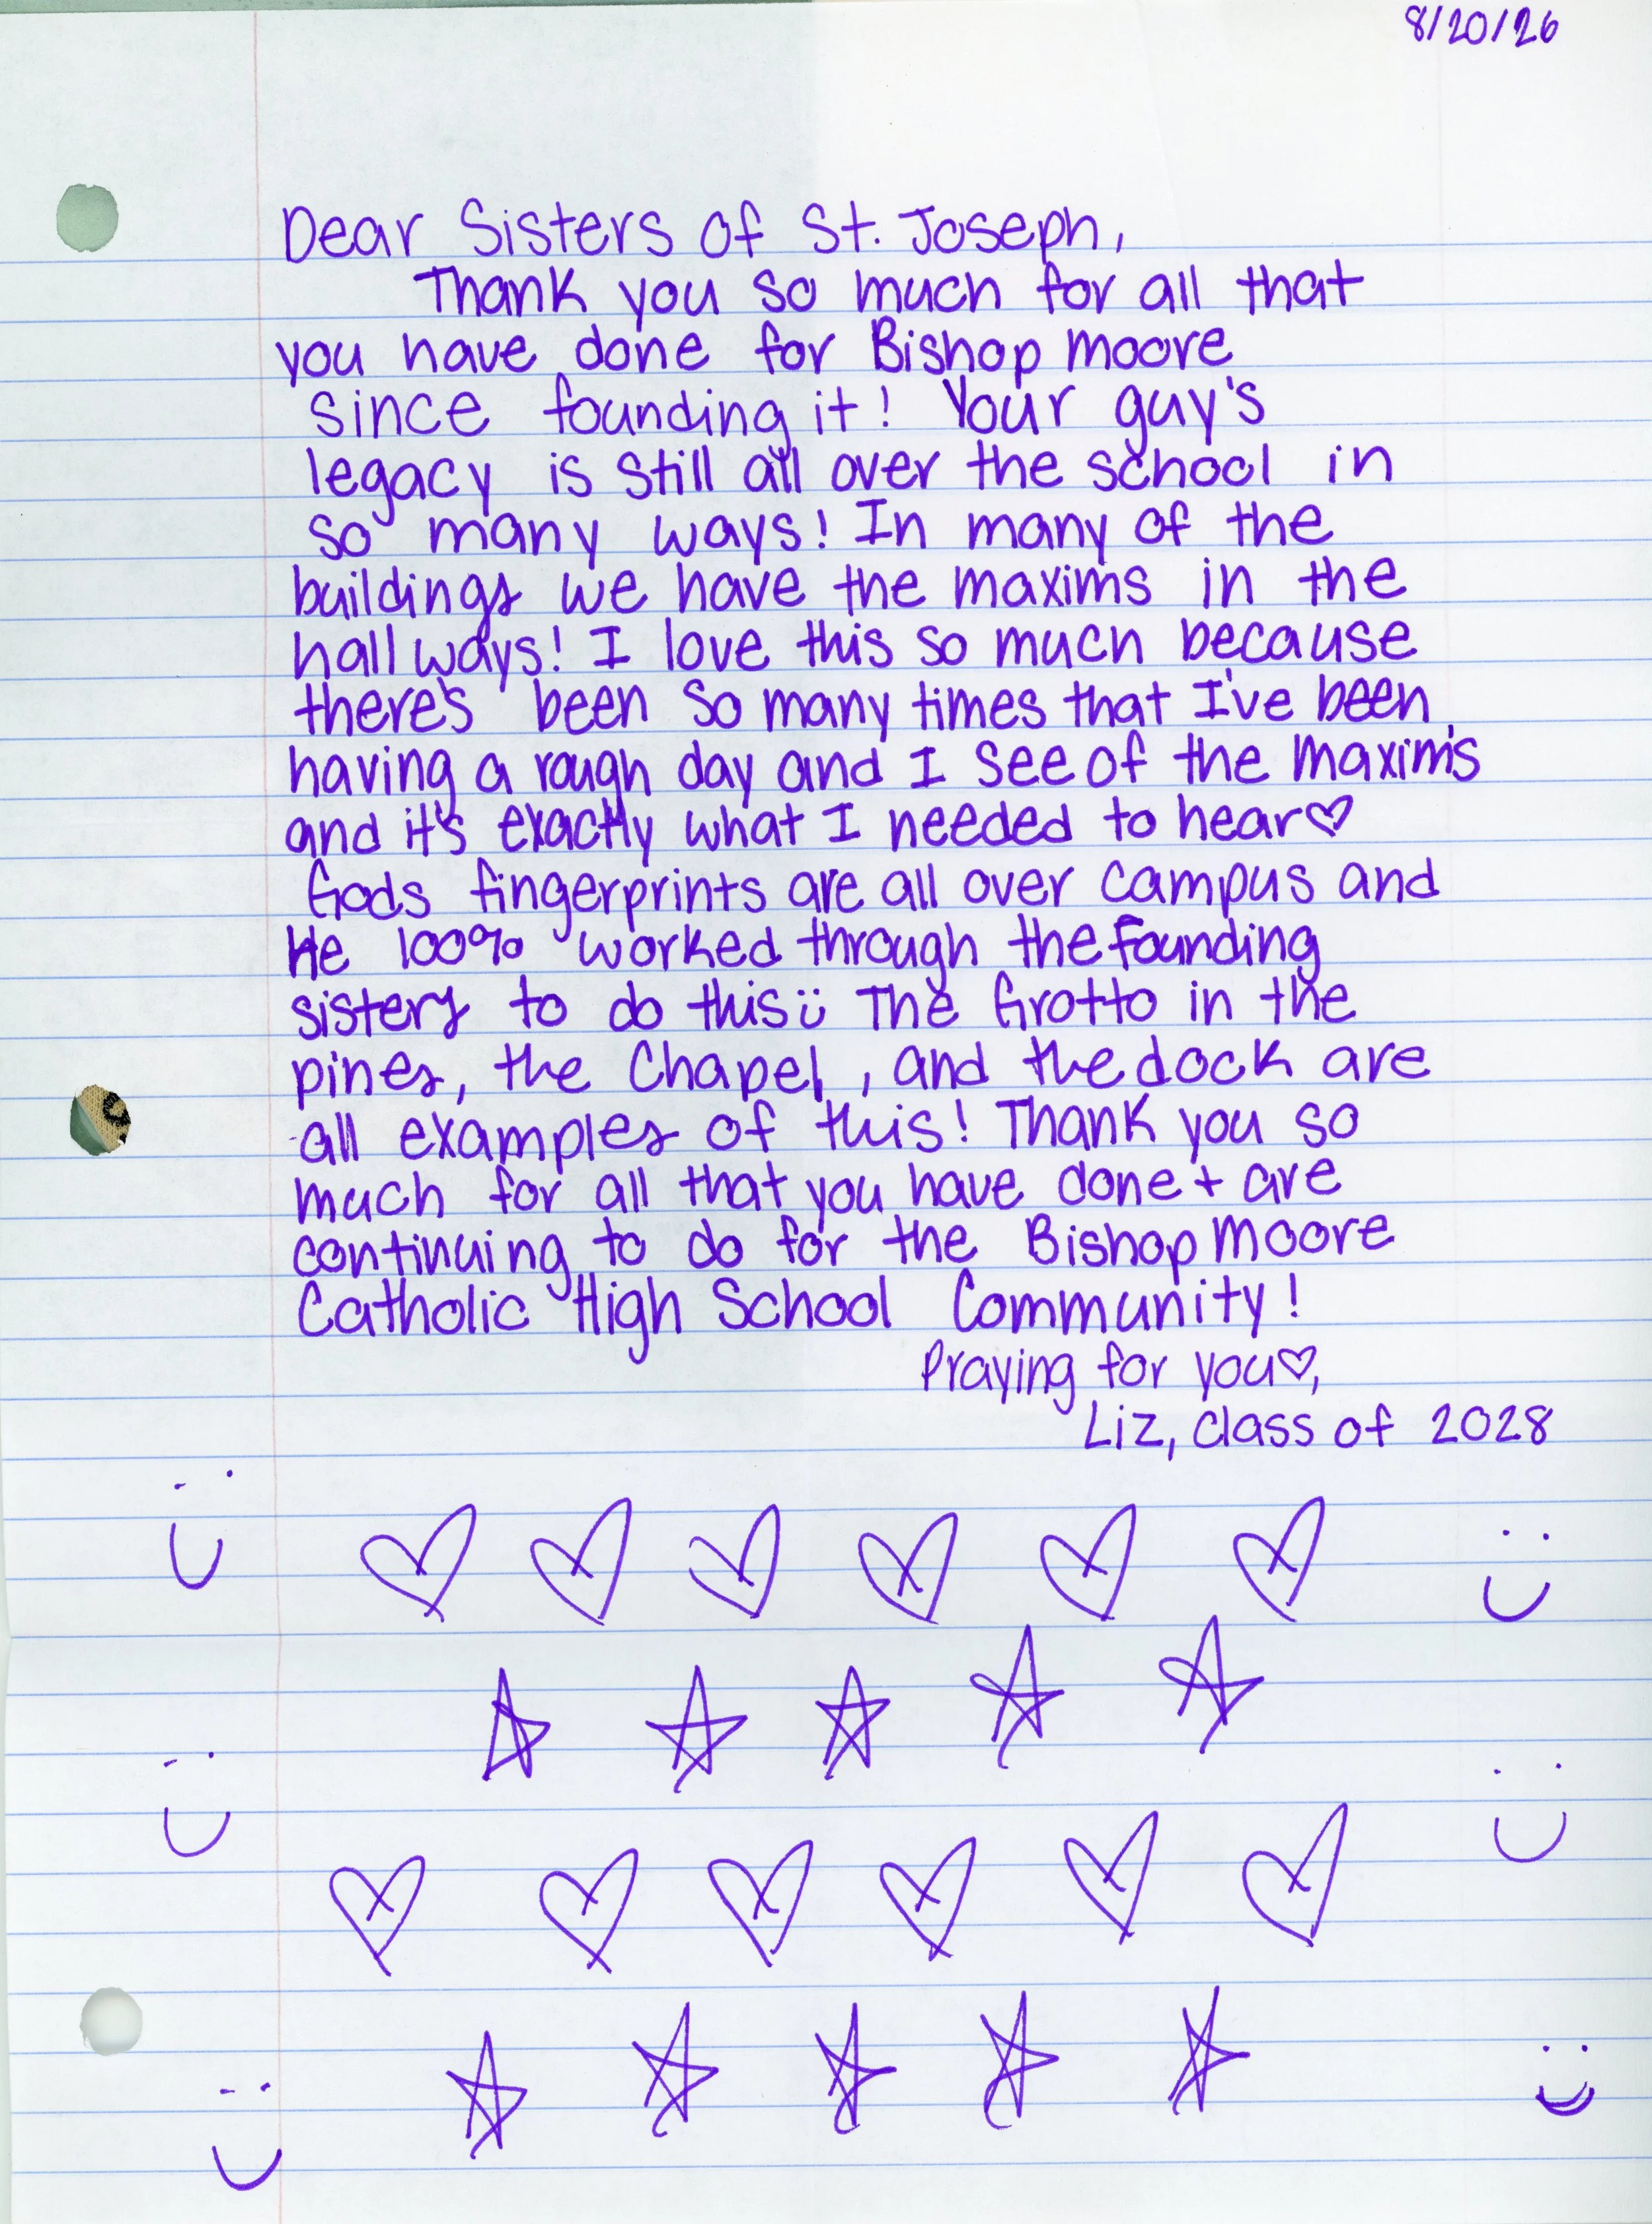 8/20/26
Dear Sisters of St. Joseph,
Thank you so much for all that
you have done for Bishop Moore
since founding it! Your guy's
legacy is still all over the school in
so many ways! In many of the
buildings we have the maxims in the
hallways! I love this so much because
there's been so many times that I've been
having a rough day and I see of the maxim's
and it's exactly what I needed to hear♡
Gods fingerprints are all over campus and
He 100% worked through the founding
sisters to do this ü The Grotto in the
pines, the Chapel, and the dock are
all examples of this! Thank you so
much for all that you have done + are
continuing to do for the Bishop Moore
Catholic High School Community!
Praying for you♡,
Liz, class of 2028